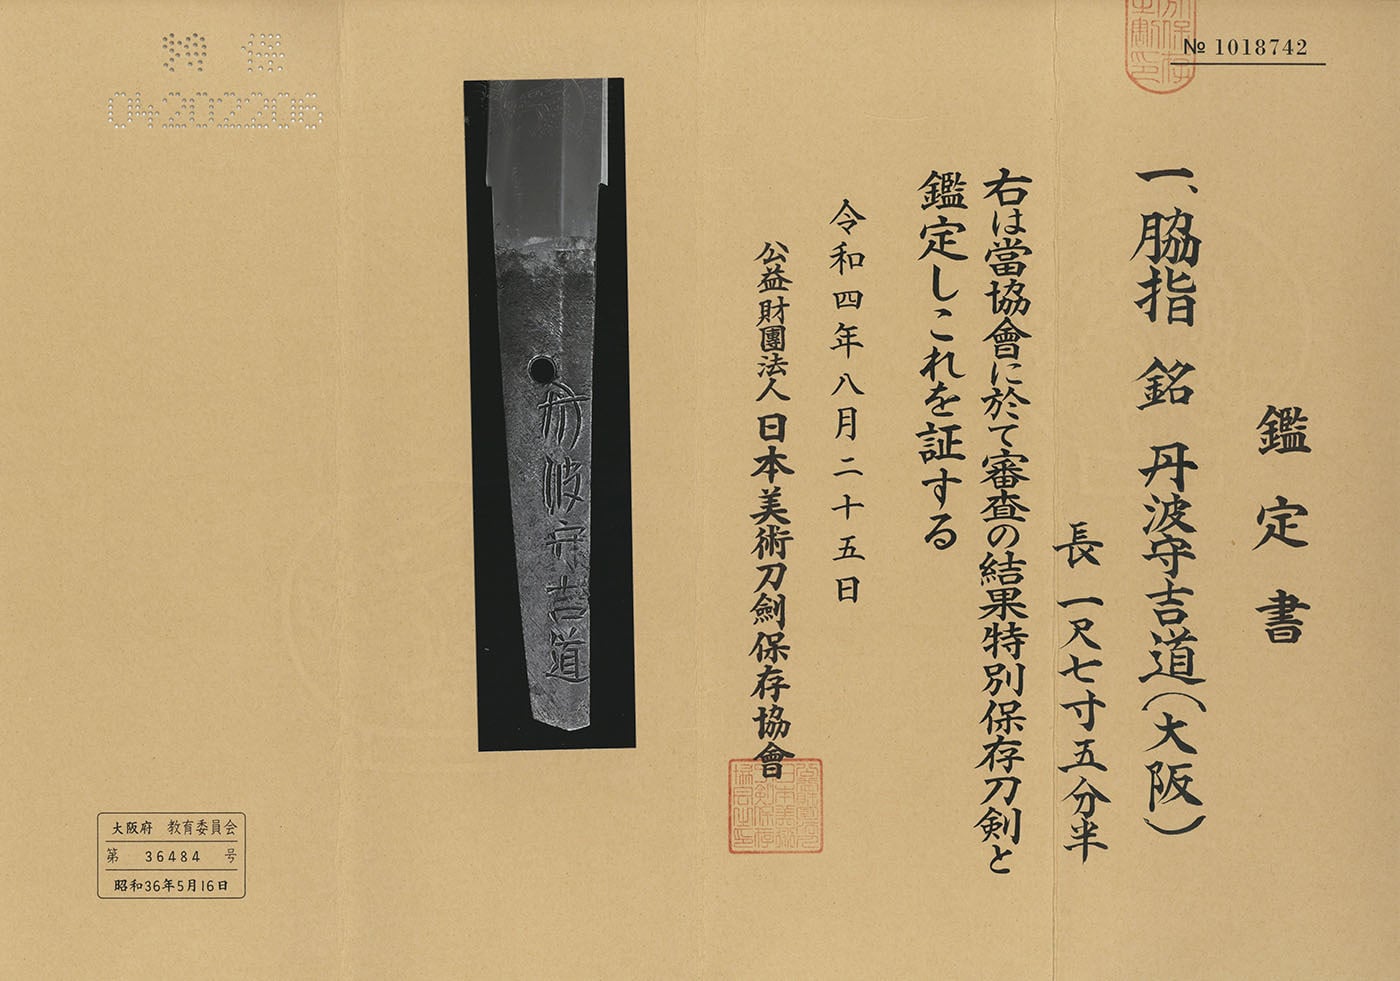 № 1018742
鑑定書
一、脇指 銘 丹波守吉道(大阪)
長 一尺七寸五分半
右は當協會に於て審査の結果特別保存刀剣と
鑑定しこれを証する
令和四年八月二十五日
公益財團法人日本美術刀劍保存協會
丹波守吉道
特 保
04202206
大阪府 教育委員会
第 36484 号
昭和36年5月16日